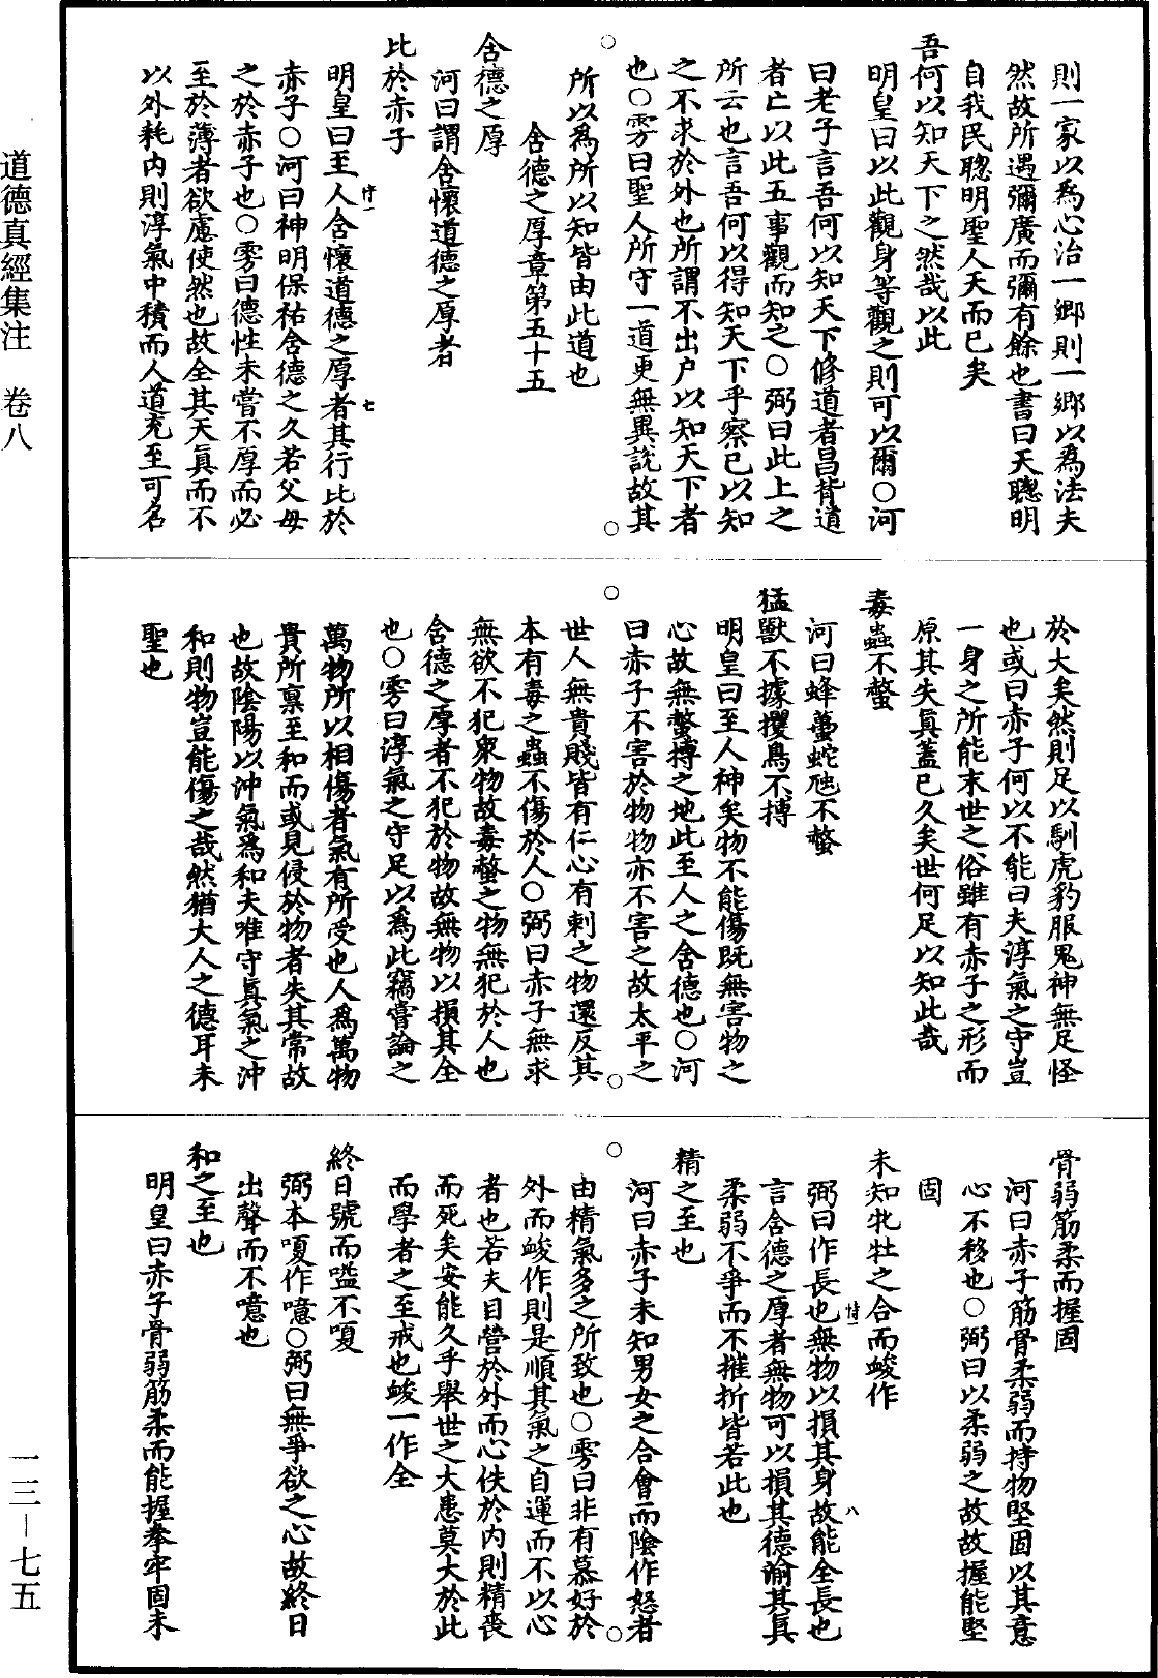 則一家以爲心治一鄉則一鄉以爲法夫
然故所遇彌廣而彌有餘也書曰天聰明
自我民聰明聖人天而已矣
吾何以知天下之然哉以此
明皇曰以此觀身等觀之則可以爾○河
曰老子言吾何以知天下修道者昌背道
者亡以此五事觀而知之○弼曰此上之
所云也言吾何以得知天下乎察己以知
之不求於外也所謂不出户以知天下者
也○雱曰聖人所守一道更無異說故其
所以爲所以知皆由此道也
含德之厚章第五十五
含德之厚
河曰謂含懷道德之厚者
比於赤子
明皇曰至人含懷道德之厚者其行比於
赤子○河曰神明保祐含德之久若父母
之於赤子也○雱曰德性未嘗不厚而必
至於薄者欲慮使然也故全其天真而不
以外耗内則淳氣中積而人道充至可名
於大矣然則足以馴虎豹服鬼神無足怪
也或曰赤子何以不能曰夫淳氣之守豈
一身之所能末世之俗雖有赤子之形而
原其失真蓋已久矣世何足以知此哉
毒蟲不螫
河曰蜂蠆蛇虺不螫
猛獸不據攫鳥不搏
明皇曰至人神矣物不能傷既無害物之
心故無螫搏之地此至人之含德也○河
曰赤子不害於物物亦不害之故太平之
世人無貴賤皆有仁心有刺之物還反其
本有毒之蟲不傷於人○弼曰赤子無求
無欲不犯衆物故毒螫之物無犯於人也
含德之厚者不犯於物故無物以損其全
也○雱曰淳氣之守足以爲此竊嘗論之
萬物所以相傷者氣有所受也人爲萬物
貴所禀至和而或見侵於物者失其常故
也故陰陽以沖氣爲和夫唯守真氣之沖
和則物豈能傷之哉然猶大人之德耳未
聖也
骨弱筋柔而握固
河曰赤子筋骨柔弱而持物堅固以其意
心不移也○弼曰以柔弱之故故握能堅
固
未知牝牡之合而峻作
弼曰作長也無物以損其身故能全長也
言含德之厚者無物可以損其德渝其真
柔弱不爭而不摧折皆若此也
精之至也
河曰赤子未知男女之合會而陰作怒者
由精氣多之所致也○雱曰非有慕好於
外而峻作則是順其氣之自運而不以心
者也若夫目營於外而心佚於内則精喪
而死矣安能久乎舉世之大患莫大於此
而學者之至戒也峻一作全
終日號而嗌不嗄
弼本嗄作噫○弼曰無爭欲之心故終日
出聲而不噫也
和之至也
明皇曰赤子骨弱筋柔而能握拳牢固未
道德真經集注　卷八
一三－七五